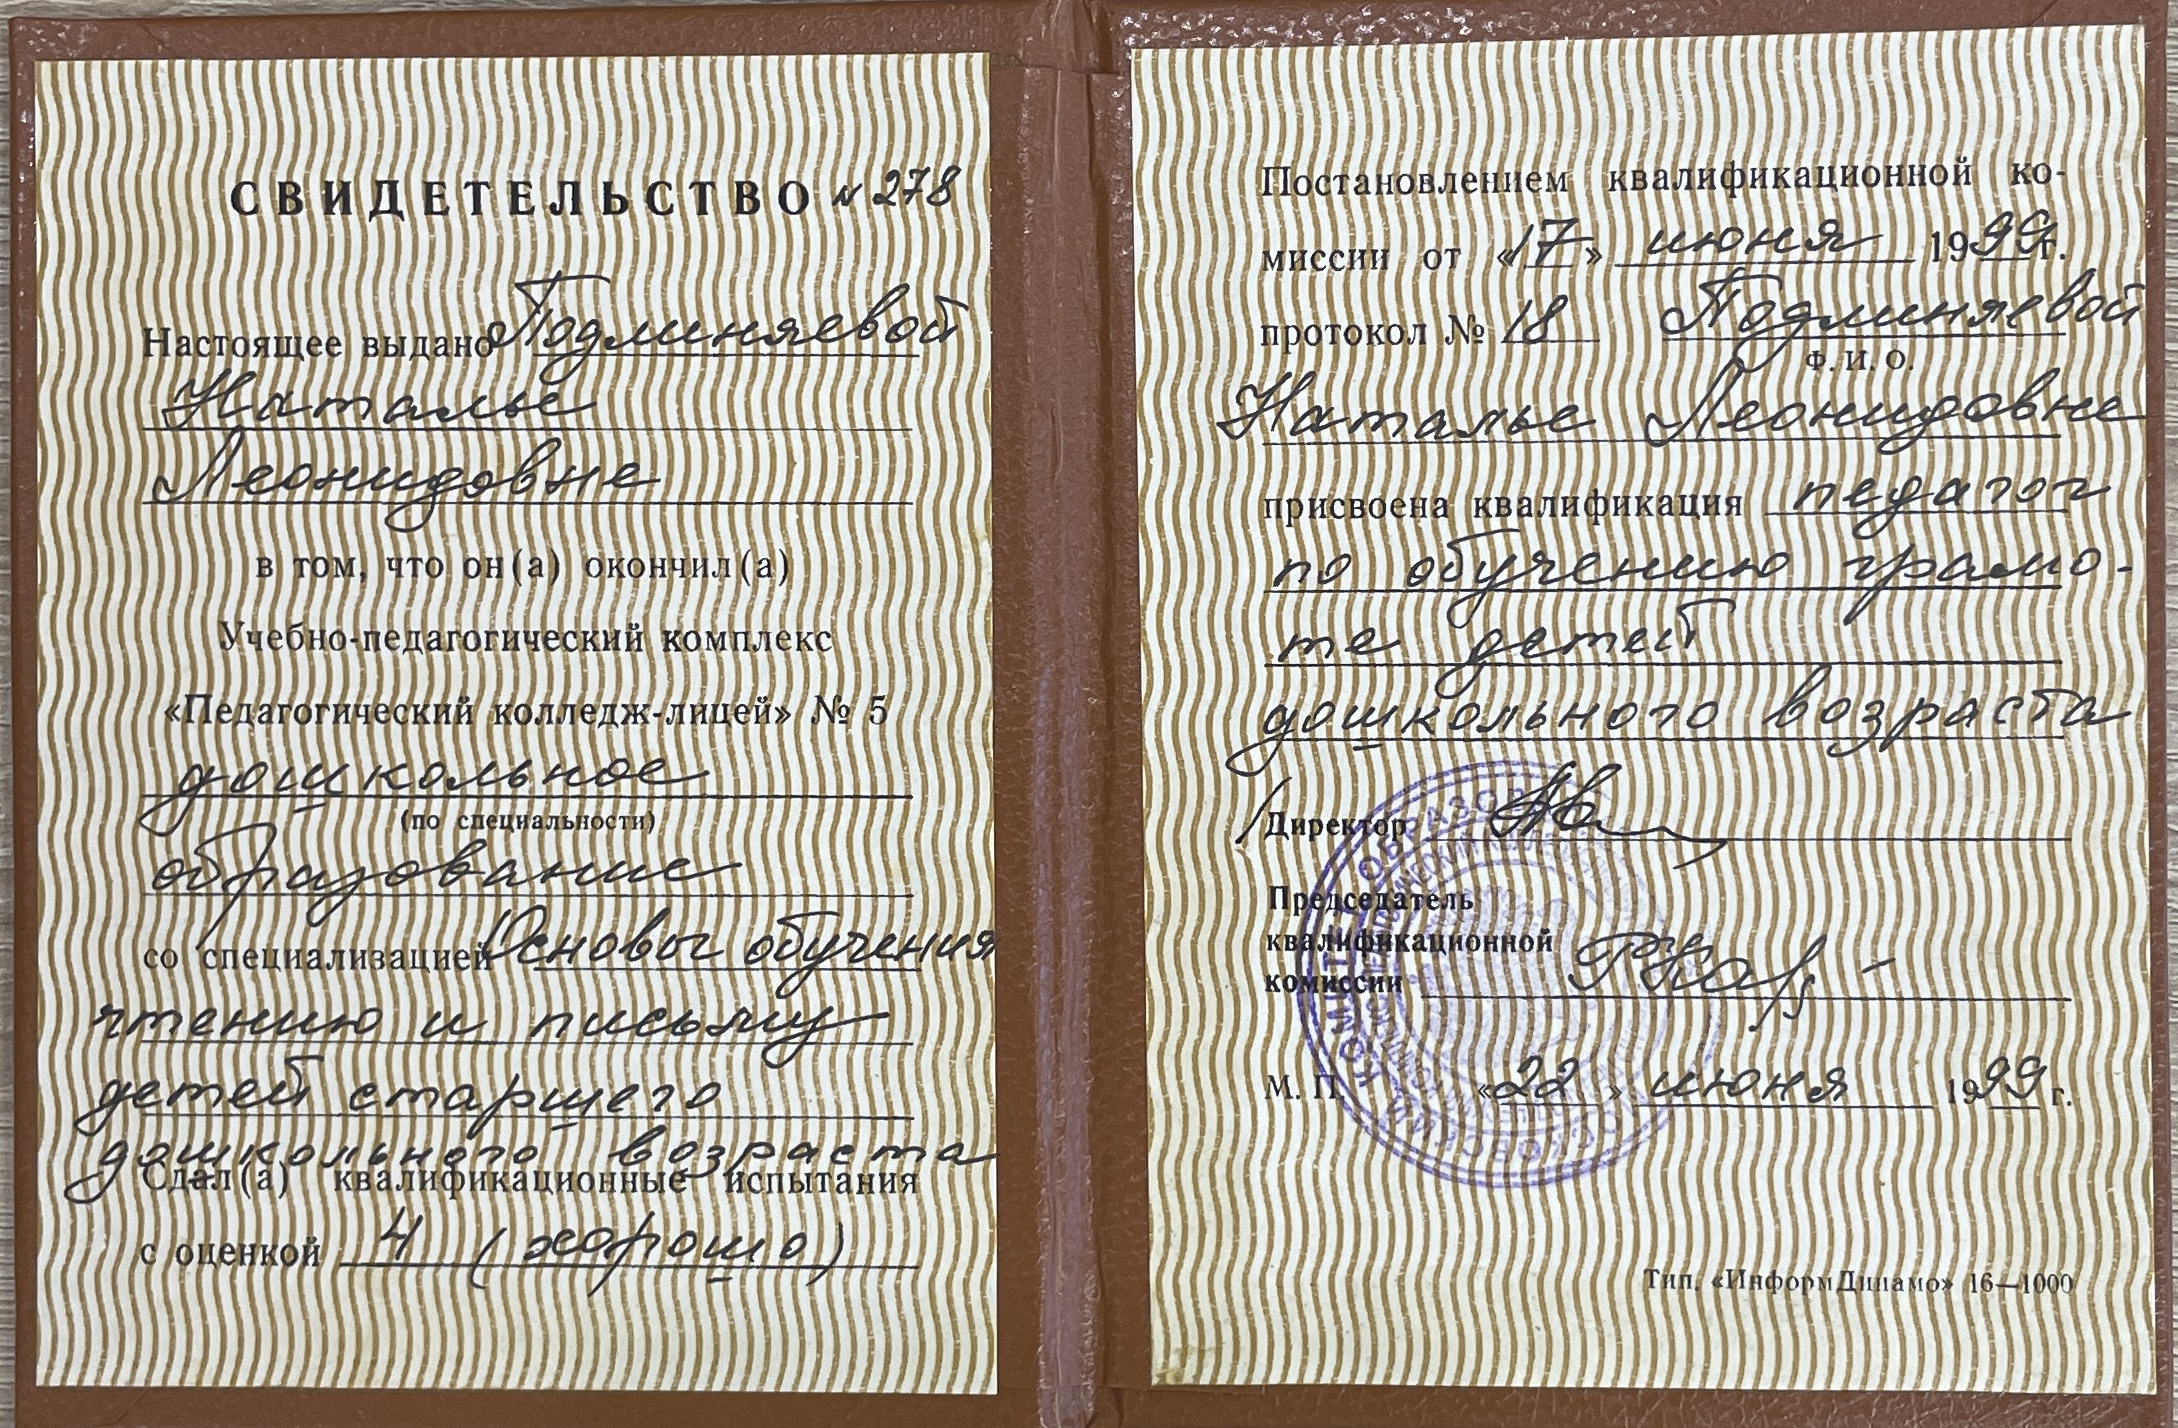 СВИДЕТЕЛЬСТВО N 278
Настоящее выдано Подминяевой
Наталье
Леонидовне
в том, что он(а) окончил(а)
Учебно-педагогический комплекс
«Педагогический колледж-лицей» № 5
дошкольное
(по специальности)
образование
со специализацией Основы обучения
чтению и письму
детей старшего
дошкольного возраста
Сдал(а) квалификационные испытания
с оценкой 4 (хорошо)
Постановлением квалификационной ко-
миссии от «17» июня 1999г.
протокол № 18 Подминяевой
Ф. И. О.
Наталье Леонидовне
присвоена квалификация педагог
по обучению грамо-
те детей
дошкольного возраста
Директор
Председатель
квалификационной
комиссии
М. П. «22» июня 1999 г.
МОСКОВСКИЙ КОМИТЕТ ОБРАЗОВ
Тип. «ИнформДинамо» 16—1000